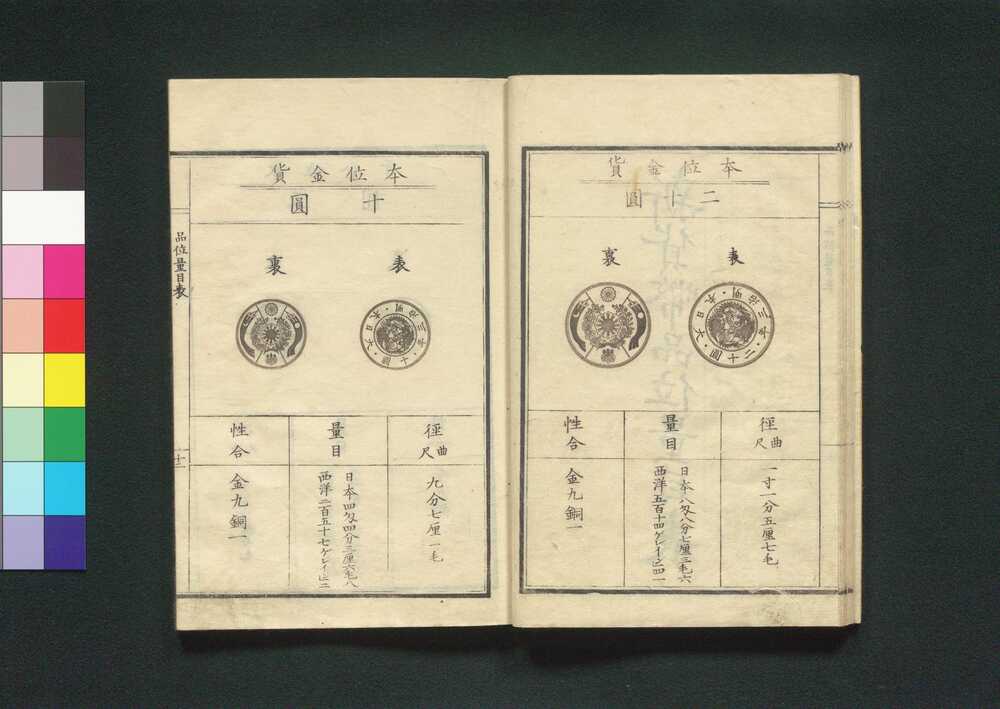 本位金貨
二十圓
表
大日本・明治三年・二十圓・
裏
徑曲尺
一寸一分五厘七毛
量目
日本八匁八分七厘三毛六
西洋五百十四ゲレイン四一
性合
金九銅一
本位金貨
十圓
表
大日本・明治三年・十圓・
裏
徑曲尺
九分七厘一毛
量目
日本四匁四分三厘六毛八
西洋二百五十七ゲレイン二
性合
金九銅一
品位量目表